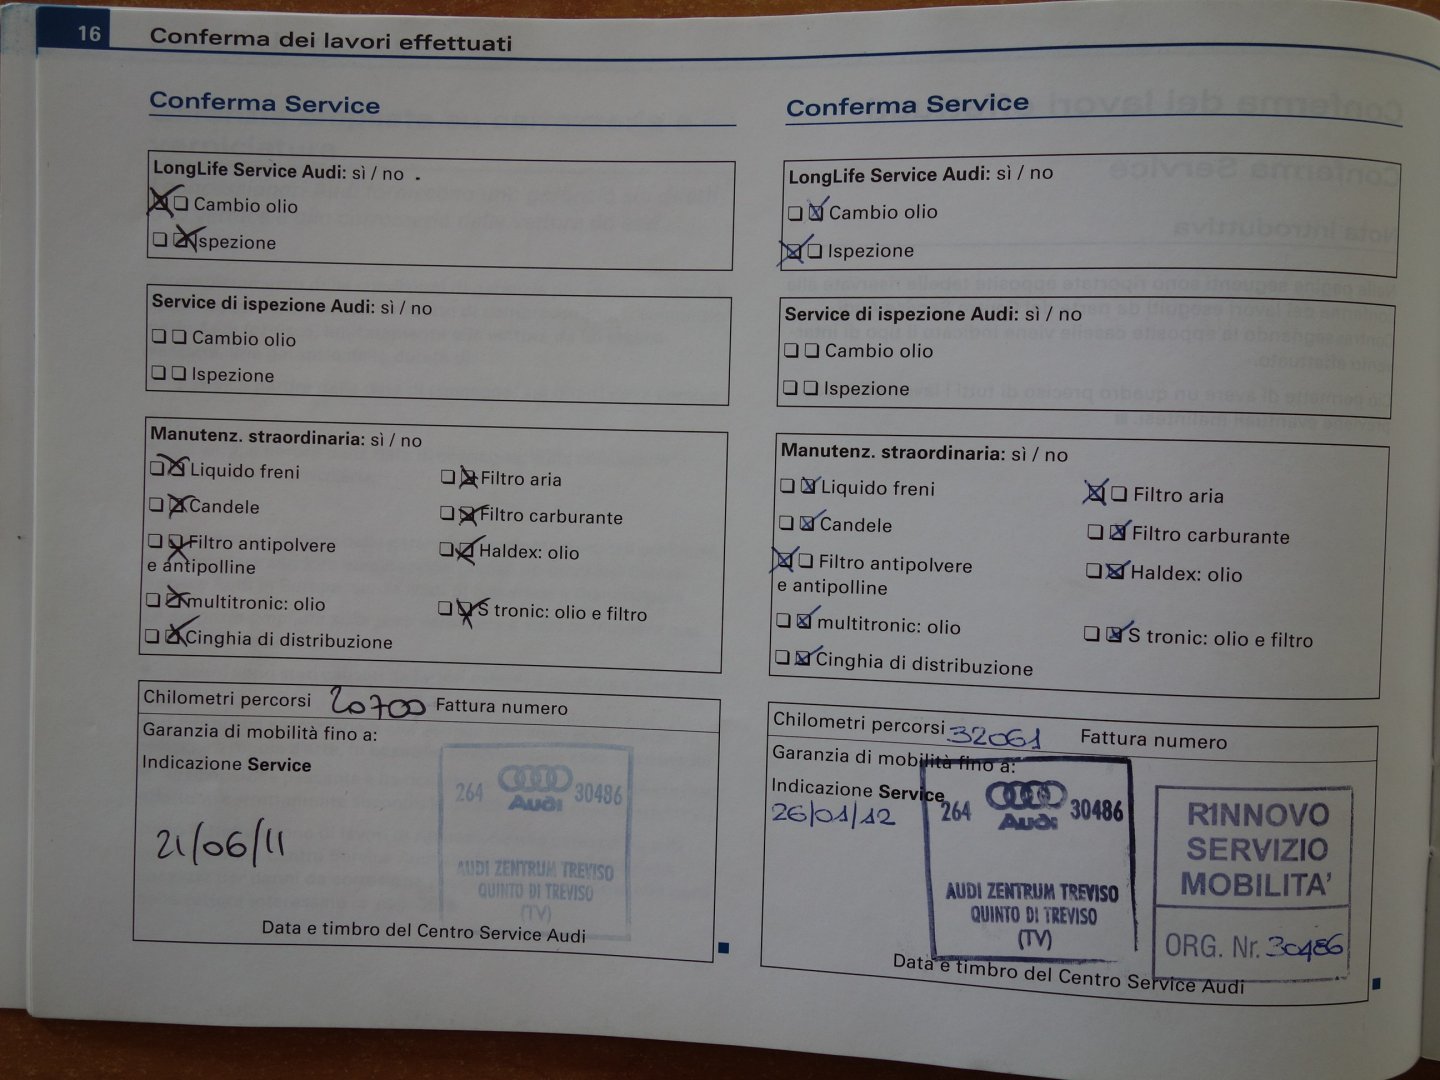 16 Conferma dei lavori effettuati
Conferma Service
LongLife Service Audi: sì / no
Cambio olio
Ispezione
Service di ispezione Audi: sì / no
Cambio olio
Ispezione
Manutenz. straordinaria: sì / no
Liquido freni
Filtro aria
Candele
Filtro carburante
Filtro antipolvere
e antipolline
Haldex: olio
multitronic: olio
S tronic: olio e filtro
Cinghia di distribuzione
Chilometri percorsi 20700 Fattura numero
Garanzia di mobilità fino a:
Indicazione Service
21/06/11
264 Audi 30486
AUDI ZENTRUM TREVISO
QUINTO DI TREVISO
(TV)
Data e timbro del Centro Service Audi
Conferma Service
LongLife Service Audi: sì / no
Cambio olio
Ispezione
Service di ispezione Audi: sì / no
Cambio olio
Ispezione
Manutenz. straordinaria: sì / no
Liquido freni
Filtro aria
Candele
Filtro carburante
Filtro antipolvere
e antipolline
Haldex: olio
multitronic: olio
S tronic: olio e filtro
Cinghia di distribuzione
Chilometri percorsi 32061 Fattura numero
Garanzia di mobilità fino a:
Indicazione Service
26/01/12
264 Audi 30486
AUDI ZENTRUM TREVISO
QUINTO DI TREVISO
(TV)
RINNOVO
SERVIZIO
MOBILITA'
ORG. Nr. 30486
Data e timbro del Centro Service Audi